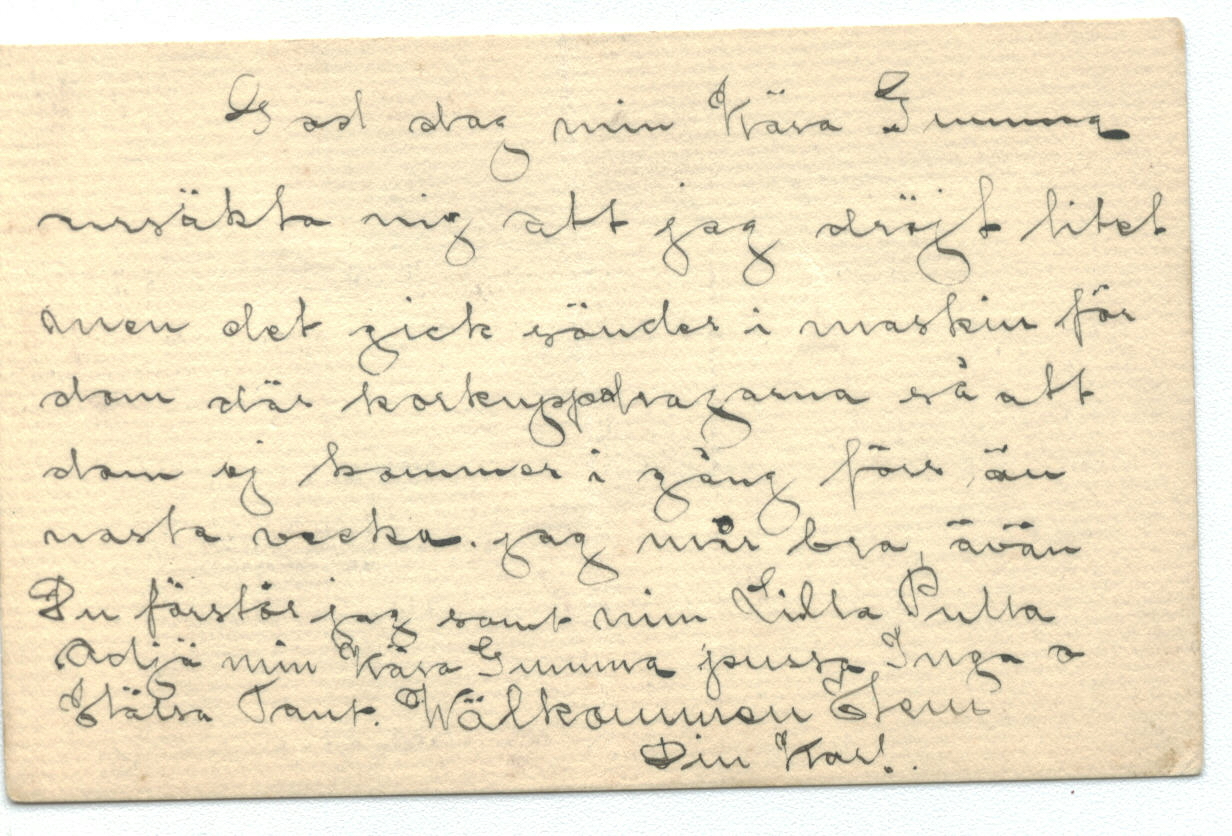 God dag min Kära Gumma
ursäkta mig att jag dröjt litet
men det gick sönder i maskin för
dom där korkuppdragarna så att
dom ej kommer i gång förr än
nasta vecka. jag mår bra, även
Du förstår jag samt min Lilla Pulla
Adjö min Kära Gumma pussa Inga o
Hälsa Tant. Wälkommen Hem
Din Karl.